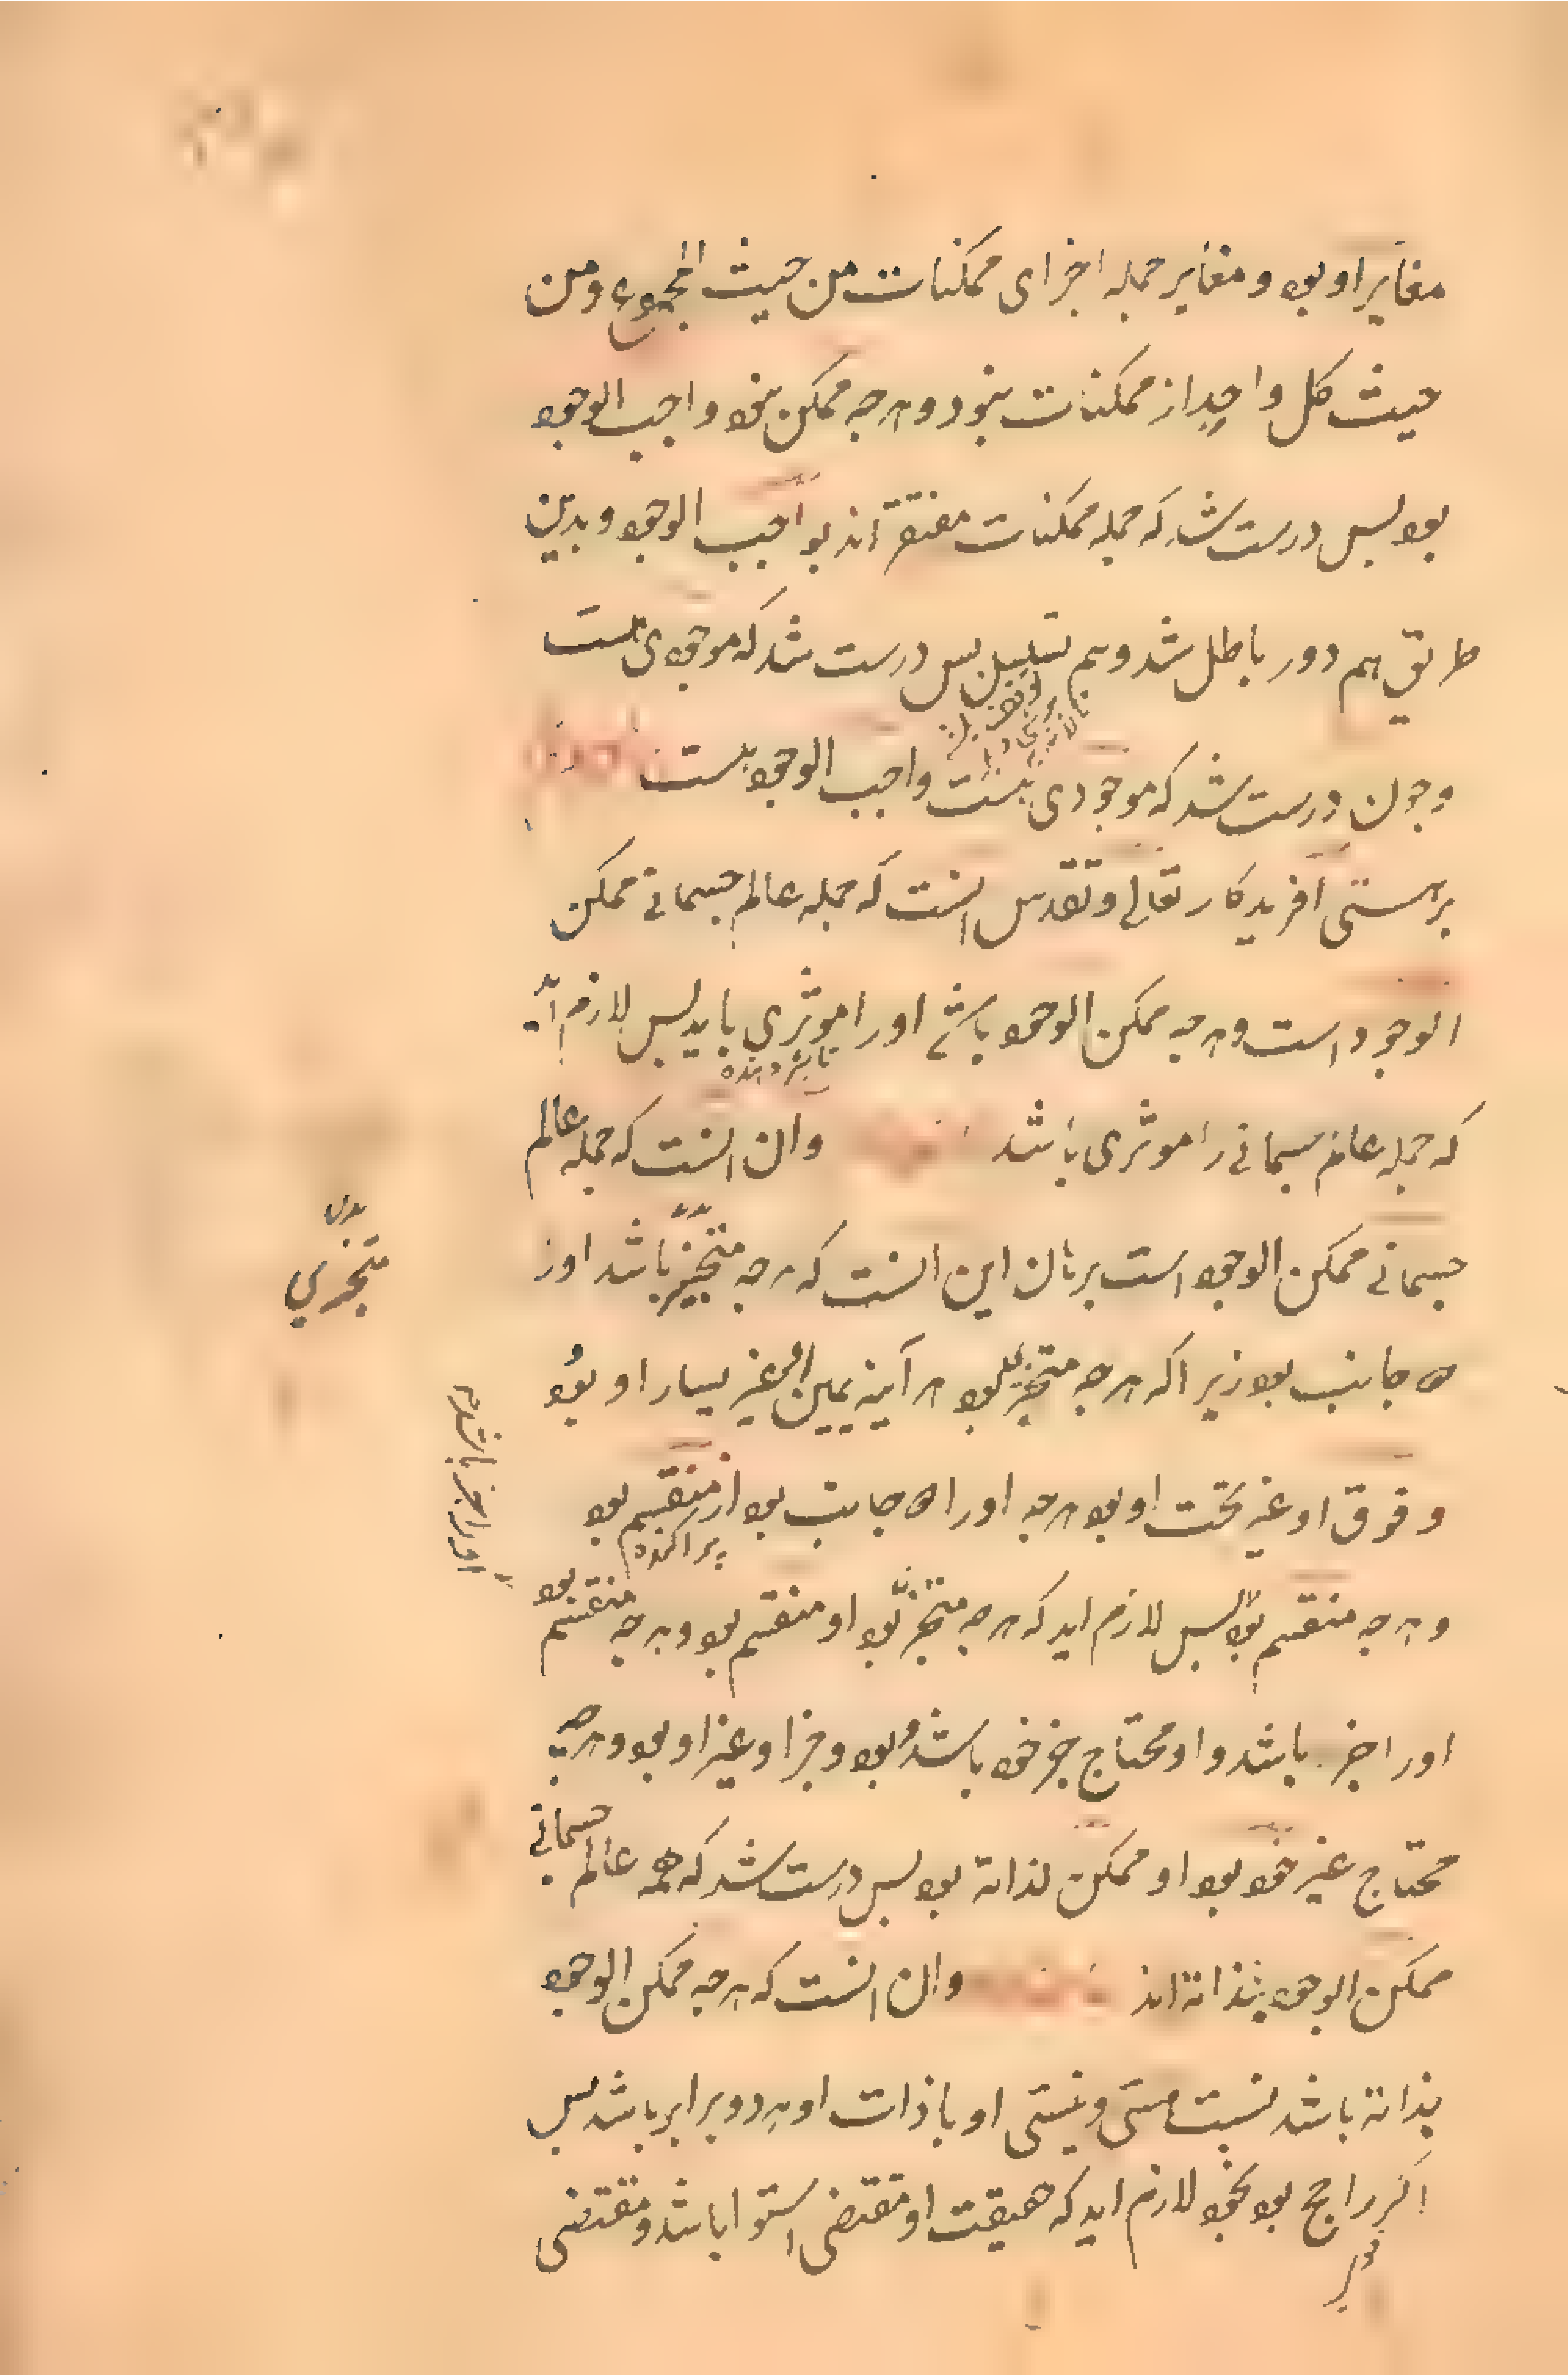 مغایر او بود و مغایر جمله اجزای ممکنات من حیث المجموع و من
حیث کل واحد از ممکنات نبود و هرچه ممکن نبود واجب الوجود
بود پس درست شد که جمله ممکنات مفتقر اند بواجب الوجود و بدین
طریق هم دور باطل شد و هم تسلسل پس درست شد که موجودی هست
وجون درست شد که موجودی هست واجب الوجود هست
برهستی افریدکار تعالی و تقدس انست که جمله عالم جسمانی ممکن
الوجود است و هرچه ممکن الوجود باشد اورا موثری باید پس لازم اید
تاثیر دهنده
که جمله عالم جسمانی را موثری باشد وان انست که جمله عالم
جسمانی ممکن الوجود است برهان این انست که هرچه متحیز باشد اورا
متجزی
جانب بود زیرا که هرچه متحیز بود هر آینه یمین او غیر یسار او بود
و فوق او غیر تحت او بود هرچه اورا جانب بود او منقسم بود
پراکنده
و هرچه منقسم بود پس لازم اید که هرچه متحیز بود او منقسم بود و هرچه منقسم بود
اورا جزء باشد و او محتاج جزء خود باشد و جزء او غیر او بود و هرچه
محتاج غیر خود بود او ممکن لذاته بود پس درست شد که همه عالم جسمانی
ممکن الوجود بذاته اند وان انست که هرچه ممکن الوجود
بذاته باشد نسبت هستی و نیستی او با ذات او هر دو برابر باشد پس
اکر راجح بود لازم اید که حقیقت او مقتضی استوا باشد و مقتضی